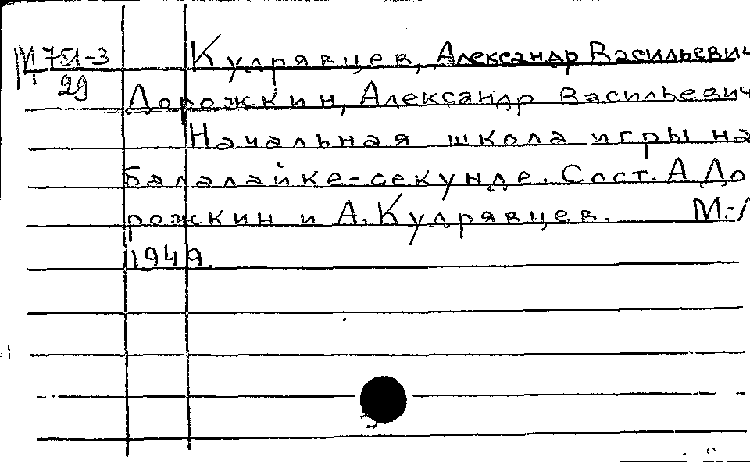 М 751-3
29
Кудрявцев, Александр Васильевич
Дорожкин, Александр Васильевич
Начальная школа игры на
балалайке-секунде. Сост. А. До
рожкин и А. Кудрявцев. М.-Л
1949.